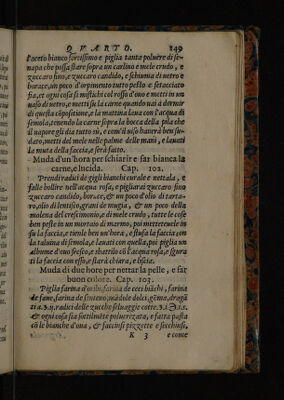 QVARTO. 249
l'aceto bianco fortissimo e piglia tanta poluere di se-
napa che possa stare sopra un carlino e mele crudo, e
zuccaro fino, e zuccaro candido, e schiuma di uetro e
borace, un poco d'orpimento tutto pesto e setacciato
sia, et ogni cosa si mistichi col rosso d'ouo e metti in un
uaso di uetro, e metti su la carne quando uai a dormir
di questa cõpositione, et la mattina laua con l'acqua di
semola, tenendo la carne sopra la bocca della pila che
il uapore gli dia tutto sù, e com'il uiso hauerà ben su-
dato, metti del mele nelle palme delle mani, e lauati
la muta della faccia, e serà fatto.
Muda d'un'hora per schiarir e far bianca la
carne, e lucida. Cap. 102.
Prendi radici de gigli bianchi curale e nettale, e
falle bollire nell'acqua rosa, e pigliarai zuccaro fino
zuccaro candido, borace, & un poco d'olio di tarta-
ro, olio di lentisco, grani de mugia, & un poco della
molena del crescimonio, e di mele crudo, tutte le cose
ben peste in un mortaio di marmo, poi metterettele in
su la faccia, e tienle ben un'hora, e stusa la faccia con
la taluina di semola, e lauati con quella, poi piglia un
albume d'ouo fresco, e sbattilo cõ l'acqua rosa, e sgura
ti la faccia con esso, e starà chiara, e liscia.
Muda di due hore per nettar la pelle, e far
buon colore. Cap. 103.
Piglia farina d'orzo, farina de ceci bianchi, farina
de faue, farina de
& ogni cosa sia sottilmẽte poluerizata, e fatta pasta
cõ le bianche d'oua, & faccinsi pizzette e secchinsi,
K 3 e come